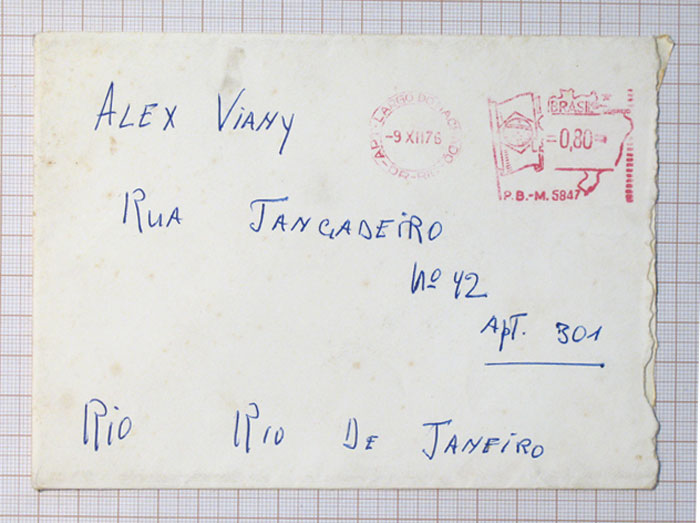 ALEX VIANY
LARGO DO MACHADO
-9 XII 76
BRASIL
=0,80=
P.B.-M. 5847
RUA JANGADEIRO
Nº 42
APT. 301
RIO RIO DE JANEIRO